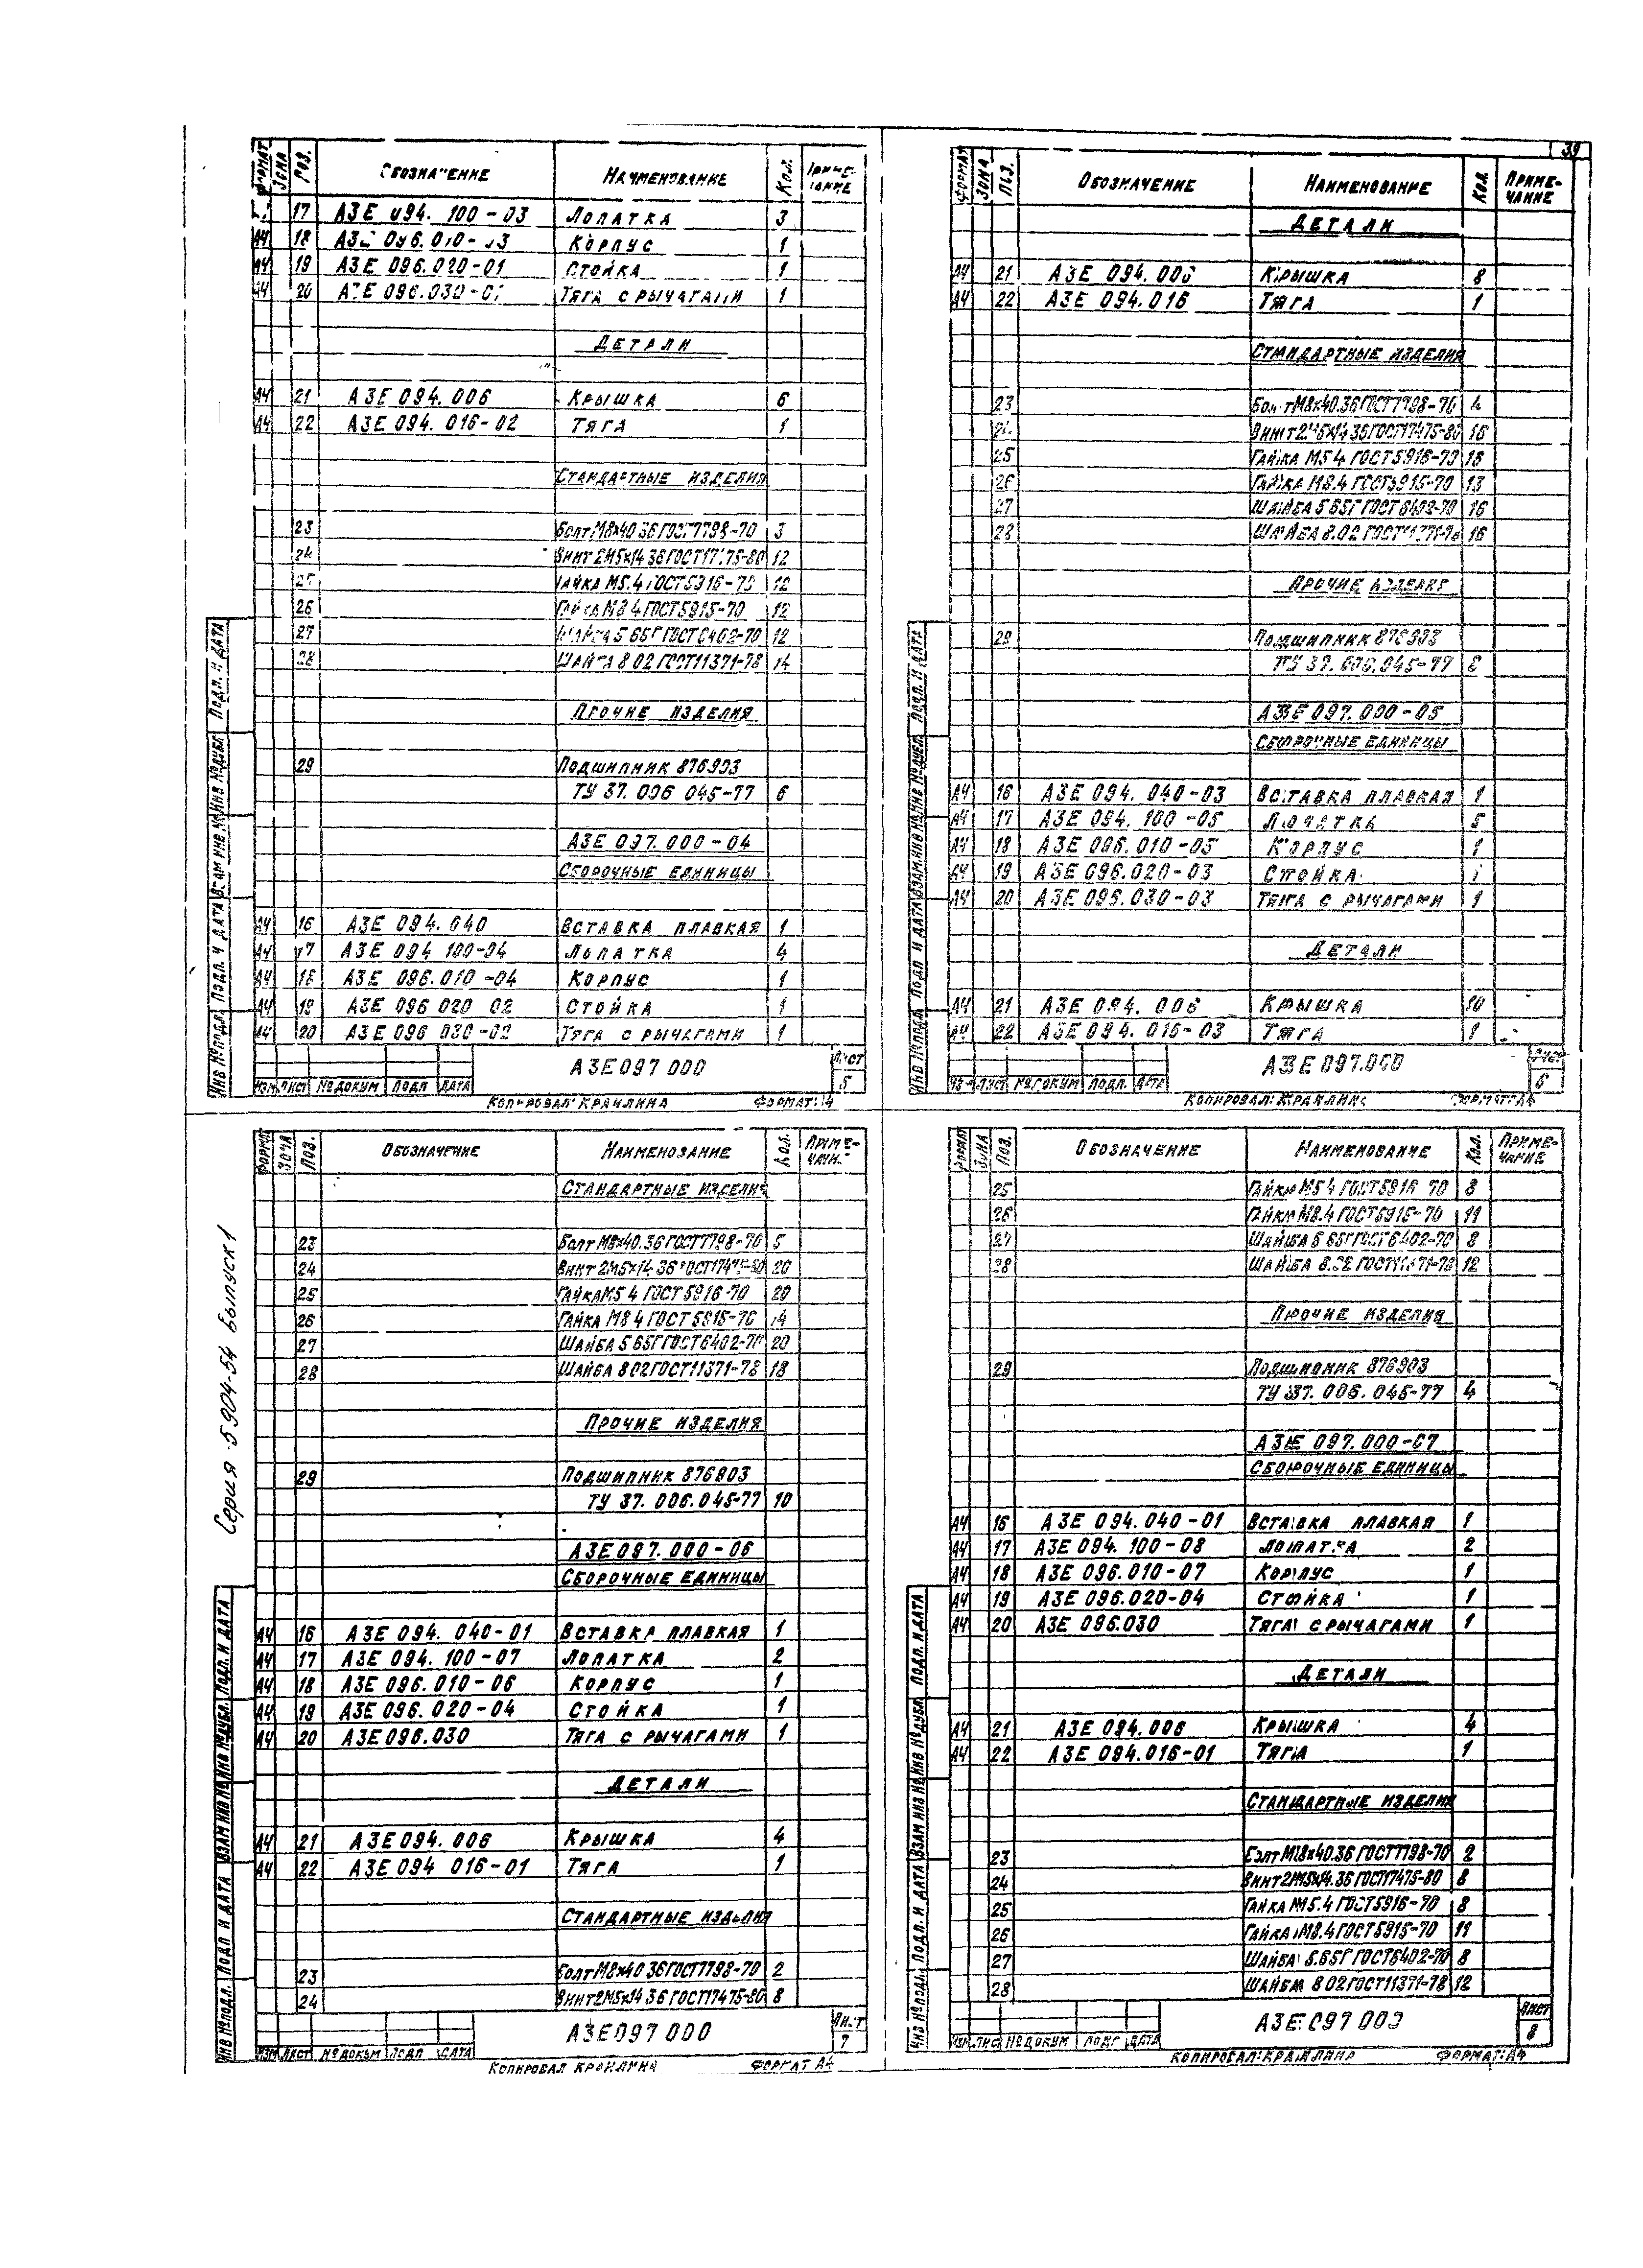 39
ЗОНА ОБОЗНАЧЕНИЕ НАИМЕНОВАНИЕ КОЛ.
17 А3Е 094. 100-03 ЛОПАТКА 3
А4 18 КОРПУС 1
А4 19 А3Е 096.020-01 СТОЙКА 1
А4 20 ТЯГА С РЫЧАГАМИ 1
ДЕТАЛИ
А4 21 А3Е 094. 006 КРЫШКА 6
А4 22 А3Е 094. 016-02 ТЯГА 1
СТАНДАРТНЫЕ ИЗДЕЛИЯ
23 БОЛТ М8х40.36 ГОСТ7798-70 3
24 ВИНТ 2М5х14 36 ГОСТ17475-80 12
ГАЙКА М5.4 ГОСТ5916-70 12
26 ГАЙКА М8 4 ГОСТ5915-70 12
27 ШАЙБА 5 65Г ГОСТ6402-70 12
28 ШАЙБА 8 02 ГОСТ11371-78 14
ПРОЧИЕ ИЗДЕЛИЯ
29 ПОДШИПНИК 876903
ТУ 37. 006 045-77 6
А3Е 097. 000-04
СБОРОЧНЫЕ ЕДИНИЦЫ
А4 16 А3Е 094. 040 ВСТАВКА ПЛАВКАЯ 1
А4 17 А3Е 094 100-04 ЛОПАТКА 4
А4 18 А3Е 096.010-04 КОРПУС 1
А4 19 А3Е 096 020 02 СТОЙКА 1
А4 20 А3Е 096 030-02 ТЯГА С РЫЧАГАМИ 1
А3Е097 000
ЛИСТ 5
ИЗМ ЛИСТ № ДОКУМ ПОДП ДАТА
КОПИРОВАЛ: КРАИЛИНА ФОРМАТ: А4
ИНВ № ПОДЛ. ПОДП. И ДАТА ВЗАМ ИНВ № ИНВ № ДУБЛ ПОДП. И ДАТА
ФОРМАТ ЗОНА ПОЗ. ОБОЗНАЧЕНИЕ НАИМЕНОВАНИЕ КОЛ. ПРИМЕ-
ЧАНИЕ
ДЕТАЛИ
А4 21 А3Е 094. 006 КРЫШКА 8
А4 22 А3Е 094. 016 ТЯГА 1
СТАНДАРТНЫЕ ИЗДЕЛИЯ
23 БОЛТ М8х40.36 ГОСТ7798-70 4
ВИНТ 2М5х14 36 ГОСТ17475-80 16
25 ГАЙКА М5 4 ГОСТ5916-70 16
26 ГАЙКА М8.4 ГОСТ5915-70 13
27 ШАЙБА 5 65Г ГОСТ 6402-70 16
28 ШАЙБА 8.02 ГОСТ11371-78 16
ПРОЧИЕ ИЗДЕЛИЯ
29 ПОДШИПНИК 876903
ТУ 37. 006.045-77 8
А3Е 097. 000-05
СБОРОЧНЫЕ ЕДИНИЦЫ
А4 16 А3Е 094. 040-03 ВСТАВКА ПЛАВКАЯ 1
А4 17 А3Е 094. 100-05 ЛОПАТКА 5
А4 18 А3Е 096. 010-05 КОРПУС 1
А4 19 А3Е 096.020-03 СТОЙКА 1
А4 20 А3Е 096.030-03 ТЯГА С РЫЧАГАМИ 1
ДЕТАЛИ
А4 21 А3Е 094. 006 КРЫШКА 10
А4 22 А3Е 094. 016-03 ТЯГА 1
А3Е 097.000
ЛИСТ 6
ИЗМ ЛИСТ № ДОКУМ ПОДП. ДАТА
КОПИРОВАЛ: КРАИЛИНА ФОРМАТ: А4
ИНВ № ПОДЛ ПОДП И ДАТА ВЗАМ. ИНВ № ИНВ № ДУБЛ. ПОДП. И ДАТА
ФОРМАТ ЗОНА ПОЗ. ОБОЗНАЧЕНИЕ НАИМЕНОВАНИЕ КОЛ. ПРИМЕ-
ЧАНИЕ
СТАНДАРТНЫЕ ИЗДЕЛИЯ
23 БОЛТ М8х40.36 ГОСТ7798-70 5
24 ВИНТ 2М5х14 36 ГОСТ17475-80 20
25 ГАЙКА М5 4 ГОСТ 5916-70 20
26 ГАЙКА М8 4 ГОСТ 5915-70 14
27 ШАЙБА 5 65Г ГОСТ6402-70 20
28 ШАЙБА 8 02 ГОСТ11371-78 18
ПРОЧИЕ ИЗДЕЛИЯ
29 ПОДШИПНИК 876903
ТУ 37. 006.045-77 10
А3Е 097. 000-06
СБОРОЧНЫЕ ЕДИНИЦЫ
А4 16 А3Е 094. 040-01 ВСТАВКА ПЛАВКАЯ 1
А4 17 А3Е 094. 100-07 ЛОПАТКА 2
А4 18 А3Е 096. 010-06 КОРПУС 1
А4 19 А3Е 096. 020-04 СТОЙКА 1
А4 20 А3Е 096.030 ТЯГА С РЫЧАГАМИ 1
ДЕТАЛИ
А4 21 А3Е 094. 006 КРЫШКА 4
А4 22 А3Е 094 016-01 ТЯГА 1
СТАНДАРТНЫЕ ИЗДЕЛИЯ
23 БОЛТ М8х40 36 ГОСТ7798-70 2
24 ВИНТ 2М5х14 36 ГОСТ17475-80 8
А3Е097 000
ЛИСТ 7
ИЗМ ЛИСТ № ДОКУМ ПОДП ДАТА
КОПИРОВАЛ КРАИЛИНА ФОРМАТ А4
Серия 5904-54 Выпуск 1
ИНВ № ПОДЛ. ПОДП И ДАТА ВЗАМ ИНВ № ИНВ № ДУБЛ. ПОДП. И ДАТА
ФОРМАТ ЗОНА ПОЗ. ОБОЗНАЧЕНИЕ НАИМЕНОВАНИЕ КОЛ. ПРИМЕ-
ЧАНИЕ
25 ГАЙКА М5 4 ГОСТ5916 70 8
26 ГАЙКА М8.4 ГОСТ5915-70 11
27 ШАЙБА 5 65Г ГОСТ6402-70 8
28 ШАЙБА 8.02 ГОСТ11371-78 12
ПРОЧИЕ ИЗДЕЛИЯ
29 ПОДШИПНИК 876903
ТУ 37. 006. 045-77 4
А3Е 097. 000-07
СБОРОЧНЫЕ ЕДИНИЦЫ
А4 16 А3Е 094. 040-01 ВСТАВКА ПЛАВКАЯ 1
А4 17 А3Е 094. 100-08 ЛОПАТКА 2
А4 18 А3Е 096.010-07 КОРПУС 1
А4 19 А3Е 096.020-04 СТОЙКА 1
А4 20 А3Е 096.030 ТЯГА С РЫЧАГАМИ 1
ДЕТАЛИ
А4 21 А3Е 094.006 КРЫШКА 4
А4 22 А3Е 094.016-01 ТЯГА 1
СТАНДАРТНЫЕ ИЗДЕЛИЯ
23 БОЛТ М8х40.36 ГОСТ7798-70 2
24 ВИНТ 2М5х14.36 ГОСТ17475-80 8
25 ГАЙКА М5.4 ГОСТ5916-70 8
26 ГАЙКА М8.4 ГОСТ5915-70 11
27 ШАЙБА 5.65Г ГОСТ6402-70 8
28 ШАЙБА 8 02 ГОСТ11371-78 12
А3Е 097 000
ЛИСТ 8
ИЗМ ЛИСТ № ДОКУМ ПОДП ДАТА
КОПИРОВАЛ: КРАИЛИНА ФОРМАТ: А4
ИНВ № ПОДЛ. ПОДП. И ДАТА ВЗАМ ИНВ № ИНВ № ДУБЛ ПОДП. И ДАТА